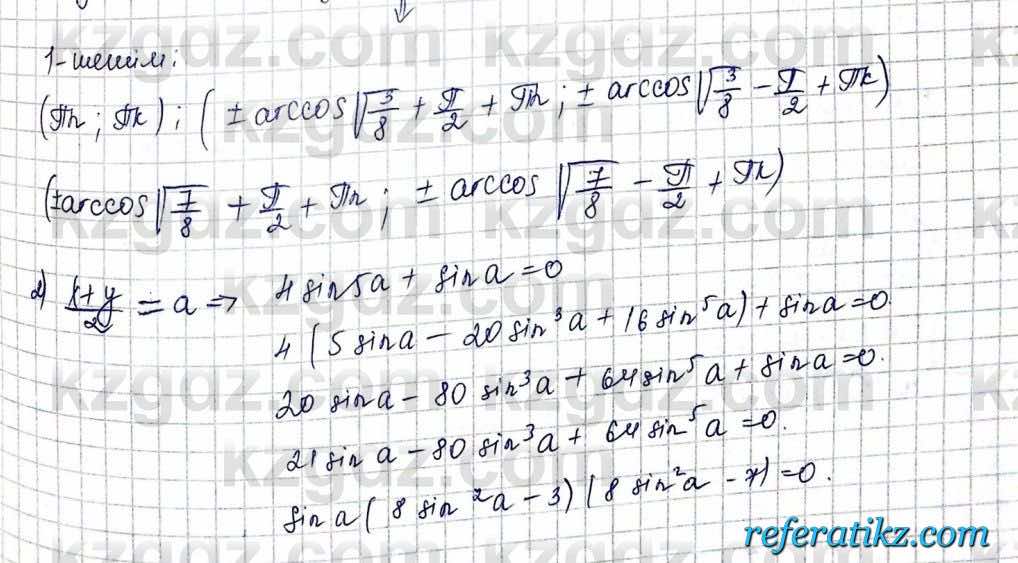 ⇓
1-шешім:
(πn; πk); (± arccos √(3/8) + π/2 + πn; ± arccos √(3/8) − π/2 + πk)
(± arccos √(7/8) + π/2 + πn; ± arccos √(7/8) − π/2 + πk)
2) (x+y)/2 = a ⇒ 4 sin5a + sin a = 0
4 (5 sin a − 20 sin³a + 16 sin⁵a) + sin a = 0.
20 sin a − 80 sin³a + 64 sin⁵a + sin a = 0.
21 sin a − 80 sin³a + 64 sin⁵a = 0.
sin a (8 sin²a − 3) (8 sin²a − 7) = 0.
kzgdz.com kzgdz.com
referatikz.com